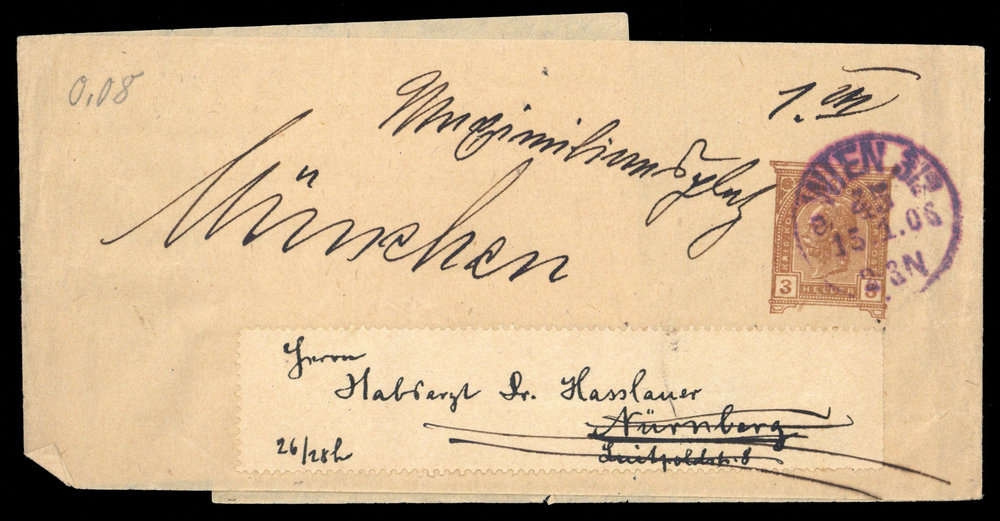 0,08
1. III
Maximiliansplatz
München
WIEN
15.1.06
3 HELLER 3
Herrn
Stabsarzt Dr. Hasslauer
Nürnberg
26/28h
Luitpoldstr. 8